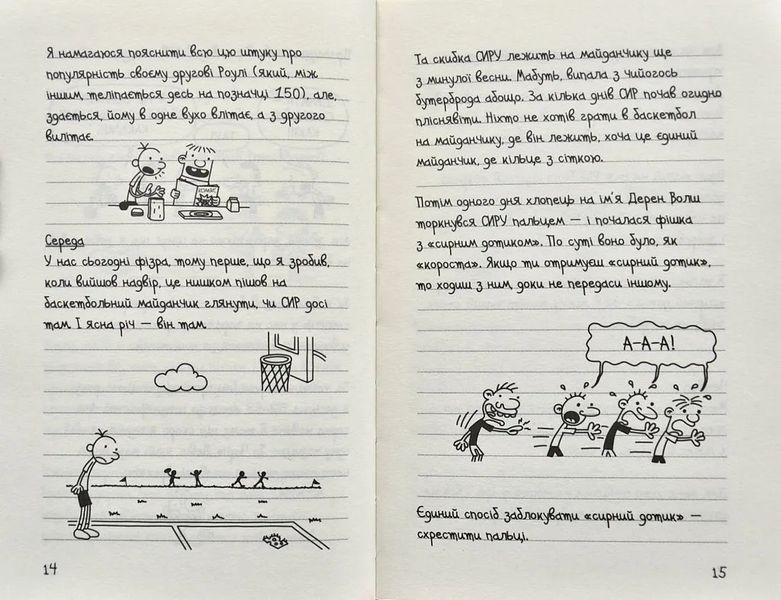 Я намагаюся пояснити всю цю штуку про
популярність своєму другові Роулі (який, між
іншим, теліпається десь на позначці 150), але,
здається, йому в одне вухо влітає, а з другого
вилітає.
Середа
У нас сьогодні фізра, тому перше, що я зробив,
коли вийшов надвір, це нишком пішов на
баскетбольний майданчик глянути, чи СИР досі
там. І ясна річ — він там.
14
Та скибка СИРУ лежить на майданчику ще
з минулої весни. Мабуть, випала з чийогось
бутерброда абощо. За кілька днів СИР почав огидно
пліснявіти. Ніхто не хотів грати в баскетбол
на майданчику, де він лежить, хоча це єдиний
майданчик, де кільце з сіткою.
Потім одного дня хлопець на ім'я Дерен Волш
торкнувся СИРУ пальцем — і почалася фішка
з «сирним дотиком». По суті воно було, як
«короста». Якщо ти отримуєш «сирний дотик»,
то ходиш з ним, доки не передаси іншому.
А-А-А!
Єдиний спосіб заблокувати «сирний дотик» —
схрестити пальці.
15